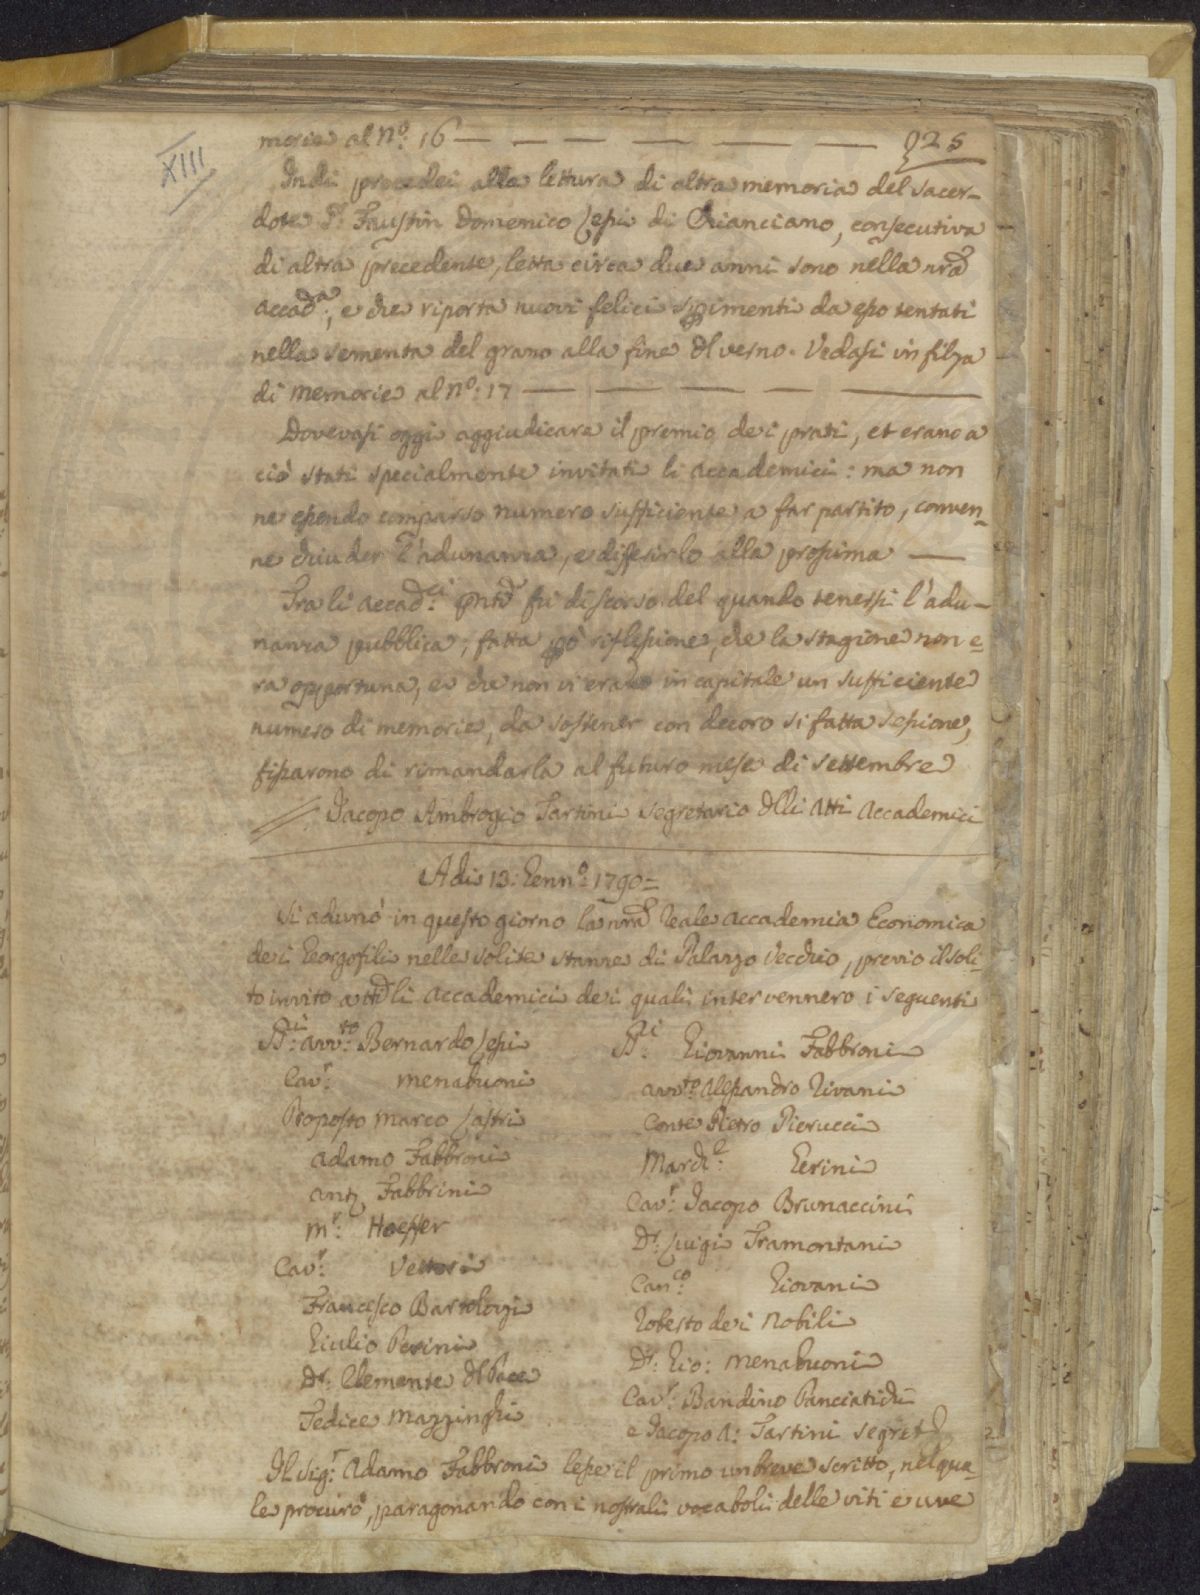 morie al N.º 16 — — — — — — — 225
XIII
Indi procedei alla lettura di altra memoria del sacer-
dote Sr. Faustin Domenico Lessi di Chianciano, consecutiva
di altra precedente, letta circa due anni sono nella nra
Accad.a, e che riporta nuovi felici sperimenti da esso tentati
nella sementa del grano alla fine dl verno. Vedasi in filza
di memorie al N.º: 17 — — — — — —
Dovevasi oggi aggiudicare il premio dei prati, et erano a
ciò stati specialmente invitati li Accademici: ma non
ne essendo comparso numero sufficiente a far partito, conven-
ne chiuder l'adunanza, e differirlo alla prossima —
Tra li Accad.ci pnti fu discorso del quando tenersi l'adu-
nanza pubblica; fatta però riflessione, che la stagione non e-
ra opportuna, e che non vi erano in capitale un sufficiente
numero di memorie, da sostener con decoro sì fatta sessione,
fissarono di rimandarla al futuro mese di settembre
Jacopo Ambrogio Tartini segretario dlli Atti Accademici
Adi 13: Genn.º: 1790=
Si adunò in questo giorno la nra Reale Accademia Economica
dei Georgofili nelle solite stanze di Palazzo Vecchio, previo il soli-
to invito a tti li Accademici dei quali intervennero i seguenti
SS.ri Avv.to Bernardo Lessi
Cav.r Menabuoni
Proposto Marco Lastri
Adamo Fabbroni
Ant. Fabbrini
Mr. Hoeffer
Cav.r Vettori
Francesco Bartolozzi
Giulio Perini
Dr. Clemente dl Pace
Fedice Mazzinghi
SS.ri Giovanni Fabbroni
Avv.to Alessandro Rivani
Conte Pietro Pierucci
March.e: Gerini
Cav.r Jacopo Brunaccini
Dr. Luigi Tramontani
Can.co Giovani
Roberto dei Nobili
Dr: Gio: Menabuoni
Cav.r Bandino Panciatichi
e Jacopo A: Tartini Segret.
Il Sig.r Adamo Fabbroni lesse il primo un breve scritto, nel qua-
le procurò, paragonando con i nostrali vocaboli delle viti e uve